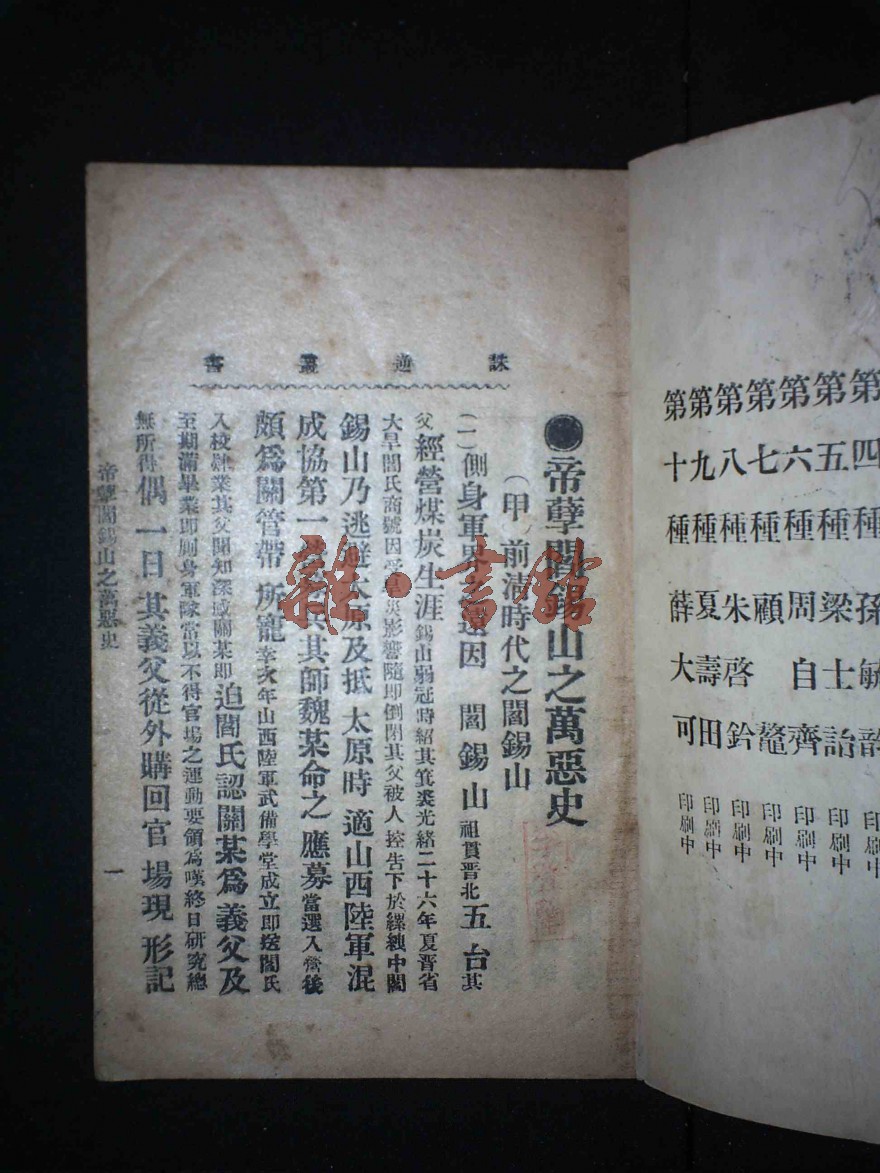 第四種 孫毓
第五種 梁士詒 印刷中
第六種 周自齊 印刷中
第七種 顧鼇 印刷中
第八種 朱啓鈐 印刷中
第九種 夏壽田 印刷中
第十種 薛大可 印刷中
誅逆叢書
帝孽閻錫山之萬惡史
(甲)前清時代之閻錫山
(一)側身軍界之遠因 閻錫山祖貫晋北五台其
父經營煤炭生涯錫山弱冠時紹其箕裘光緒二十六年夏晋省
大旱閻氏商號因受旱災影響隨即倒閉其父被人控告下於縲絏中閻
錫山乃逃避太原及抵太原時適山西陸軍混
成協第一募兵其師魏某命之應募當選入營後
頗爲關管帶所寵辛亥年山西陸軍武備學堂成立即送閻氏
入校肄業其父聞知深感關某即迫閻氏認關某爲義父及
至期滿畢業即厠身軍隊當以不得官塲之運動要領爲嘆終日研究總
無所得偶一日其義父從外購回官塲現形記
帝孽閻錫山之萬惡史
一
雜·書館